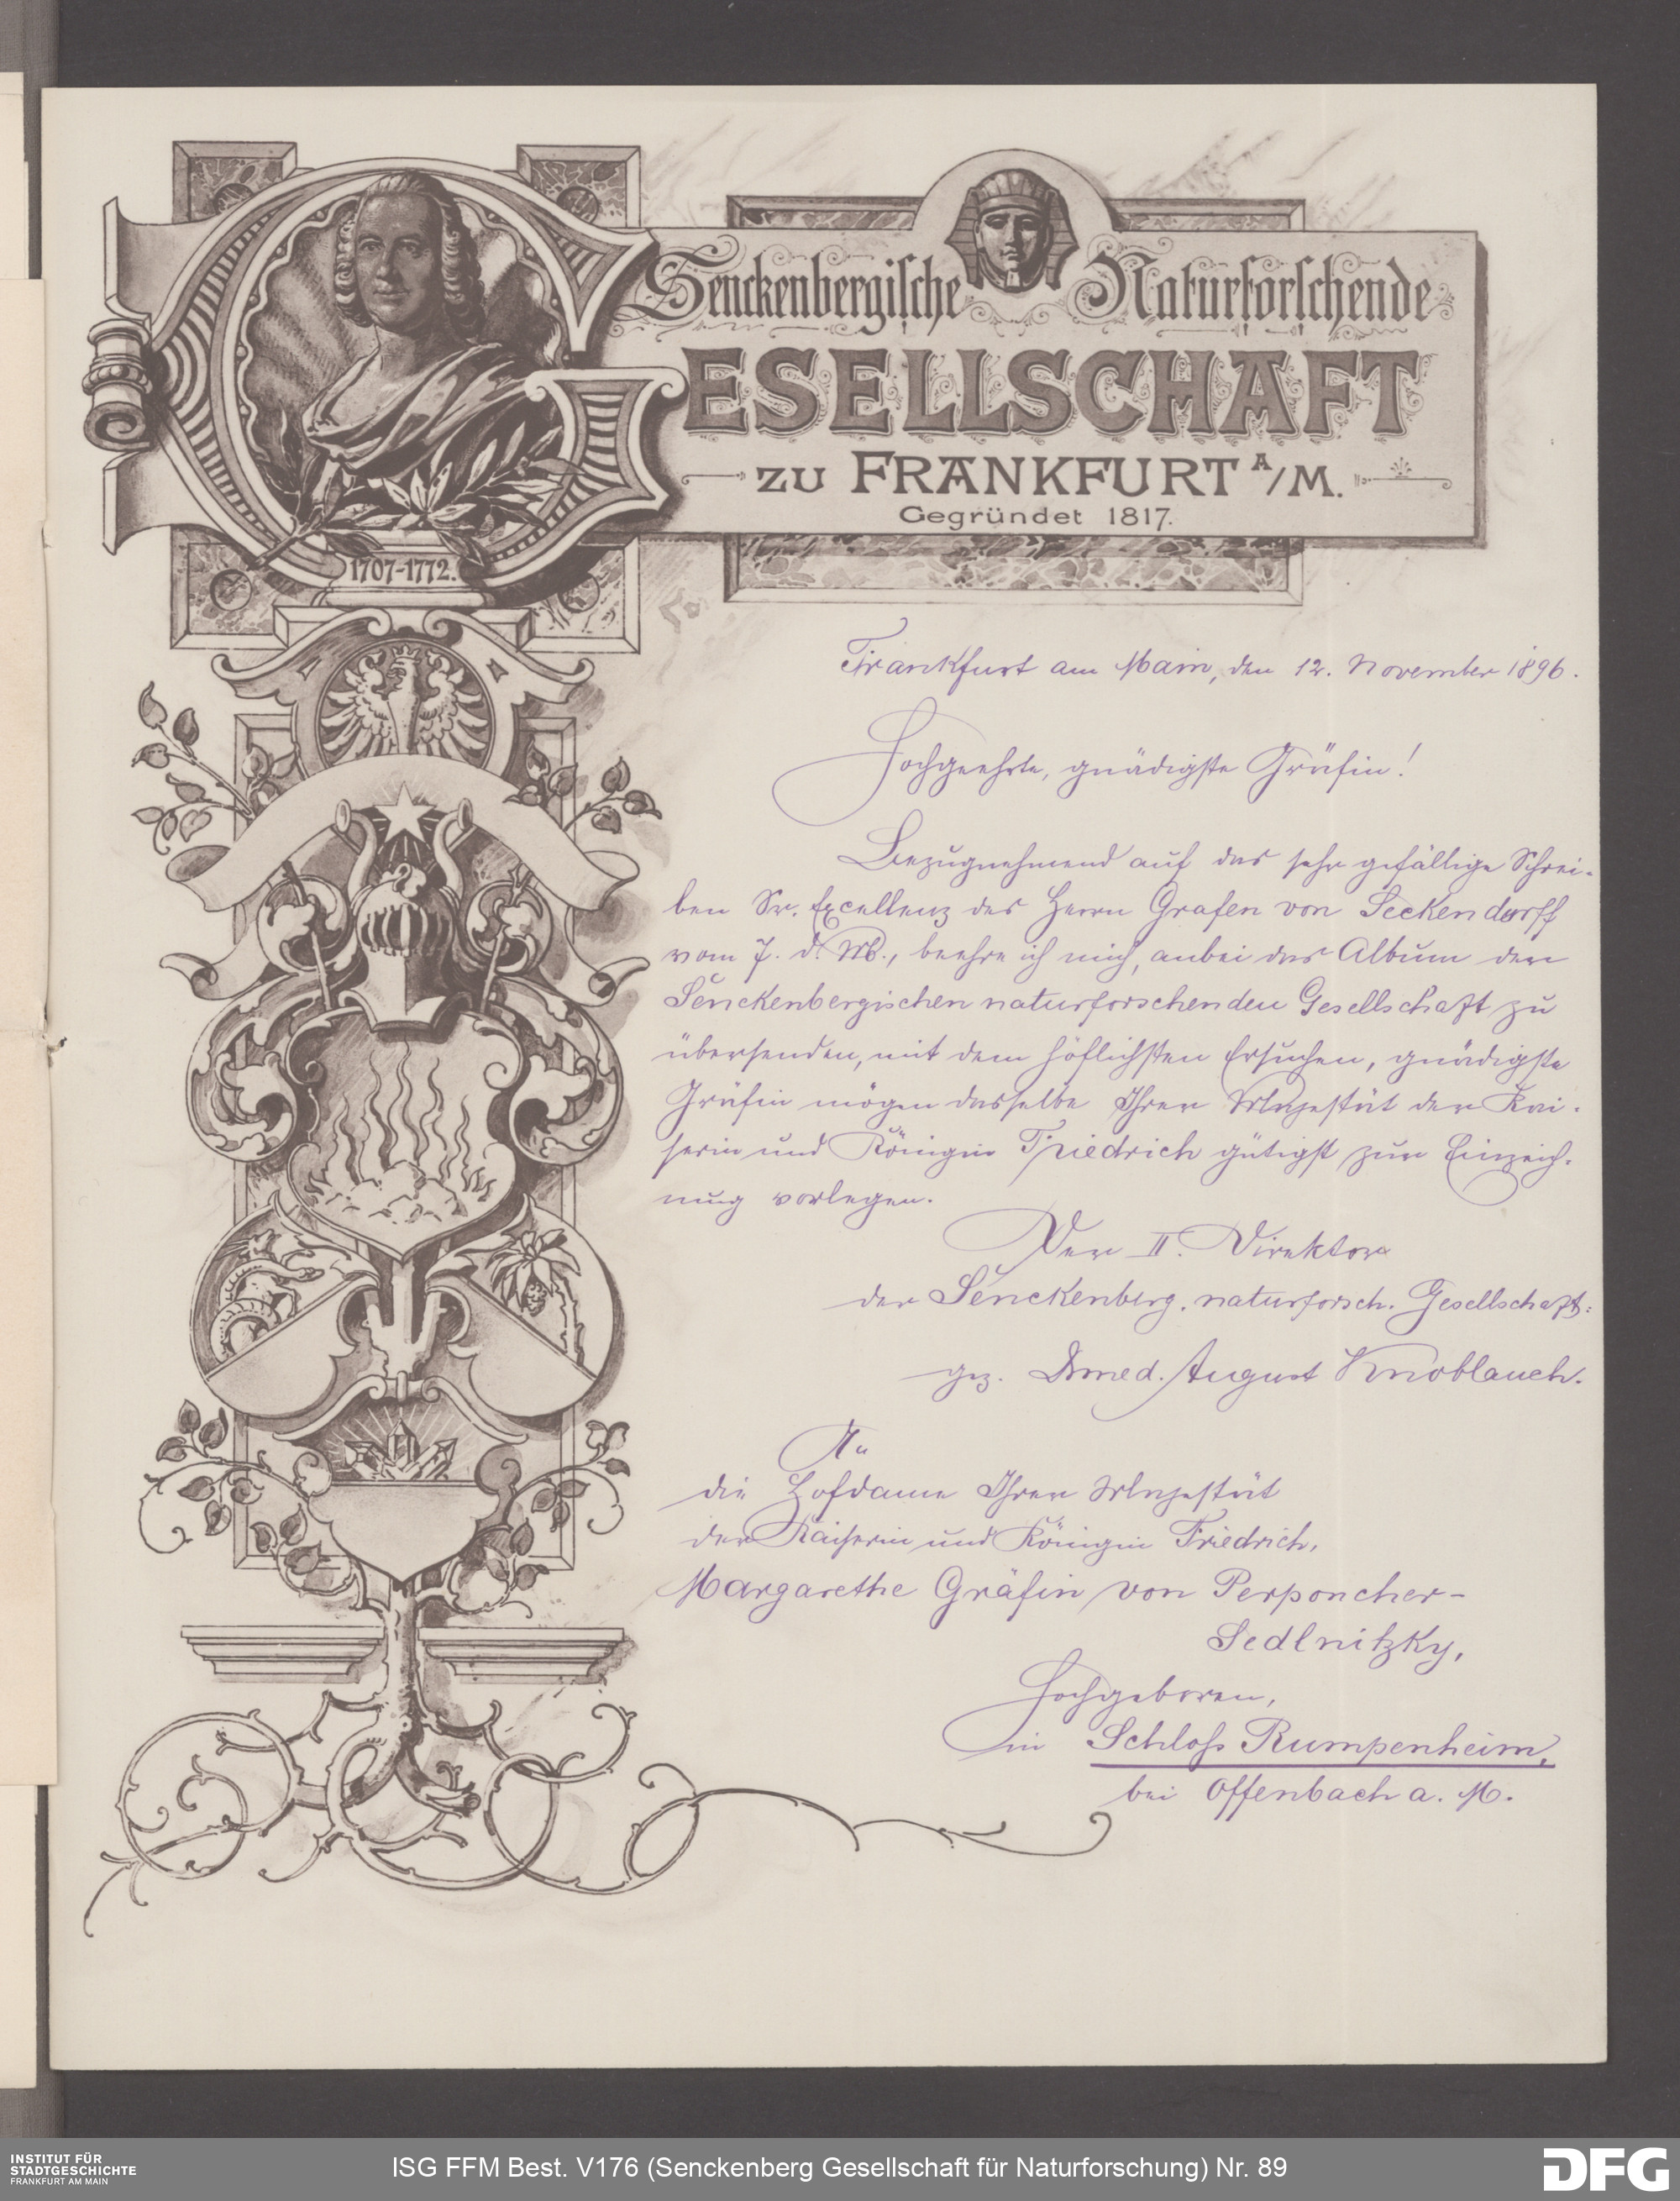 Senckenbergische Naturforschende
GESELLSCHAFT
ZU FRANKFURT A/M.
Gegründet 1817.
1707-1772.
Frankfurt am Main, den 12. November 1896.
Hochgeehrte, gnädigste Gräfin!
Bezugnehmend auf das sehr gefällige Schrei-
ben Sr. Excellenz des Herrn Grafen von Seckendorff
vom 7. d. M., beehre ich mich, anbei das Album der
Senckenbergischen naturforschenden Gesellschaft zu
übersenden, mit dem höflichsten Ersuchen, gnädigste
Gräfin mögen dasselbe Ihrer Majestät der Kai-
serin und Königin Friedrich gütigst zur Einzeich-
nung vorlegen.
Der II. Direktor
der Senckenberg. naturforsch. Gesellschaft:
gez. Dr med. August Knoblauch.
An
die Hofdame Ihrer Majestät
der Kaiserin und Königin Friedrich,
Margarethe Gräfin von Perponcher-
Sedlnitzky,
Hochgeboren,
in Schloß Rumpenheim,
bei Offenbach a. M.
INSTITUT FÜR
STADTGESCHICHTE
FRANKFURT AM MAIN
ISG FFM Best. V176 (Senckenberg Gesellschaft für Naturforschung) Nr. 89
DFG